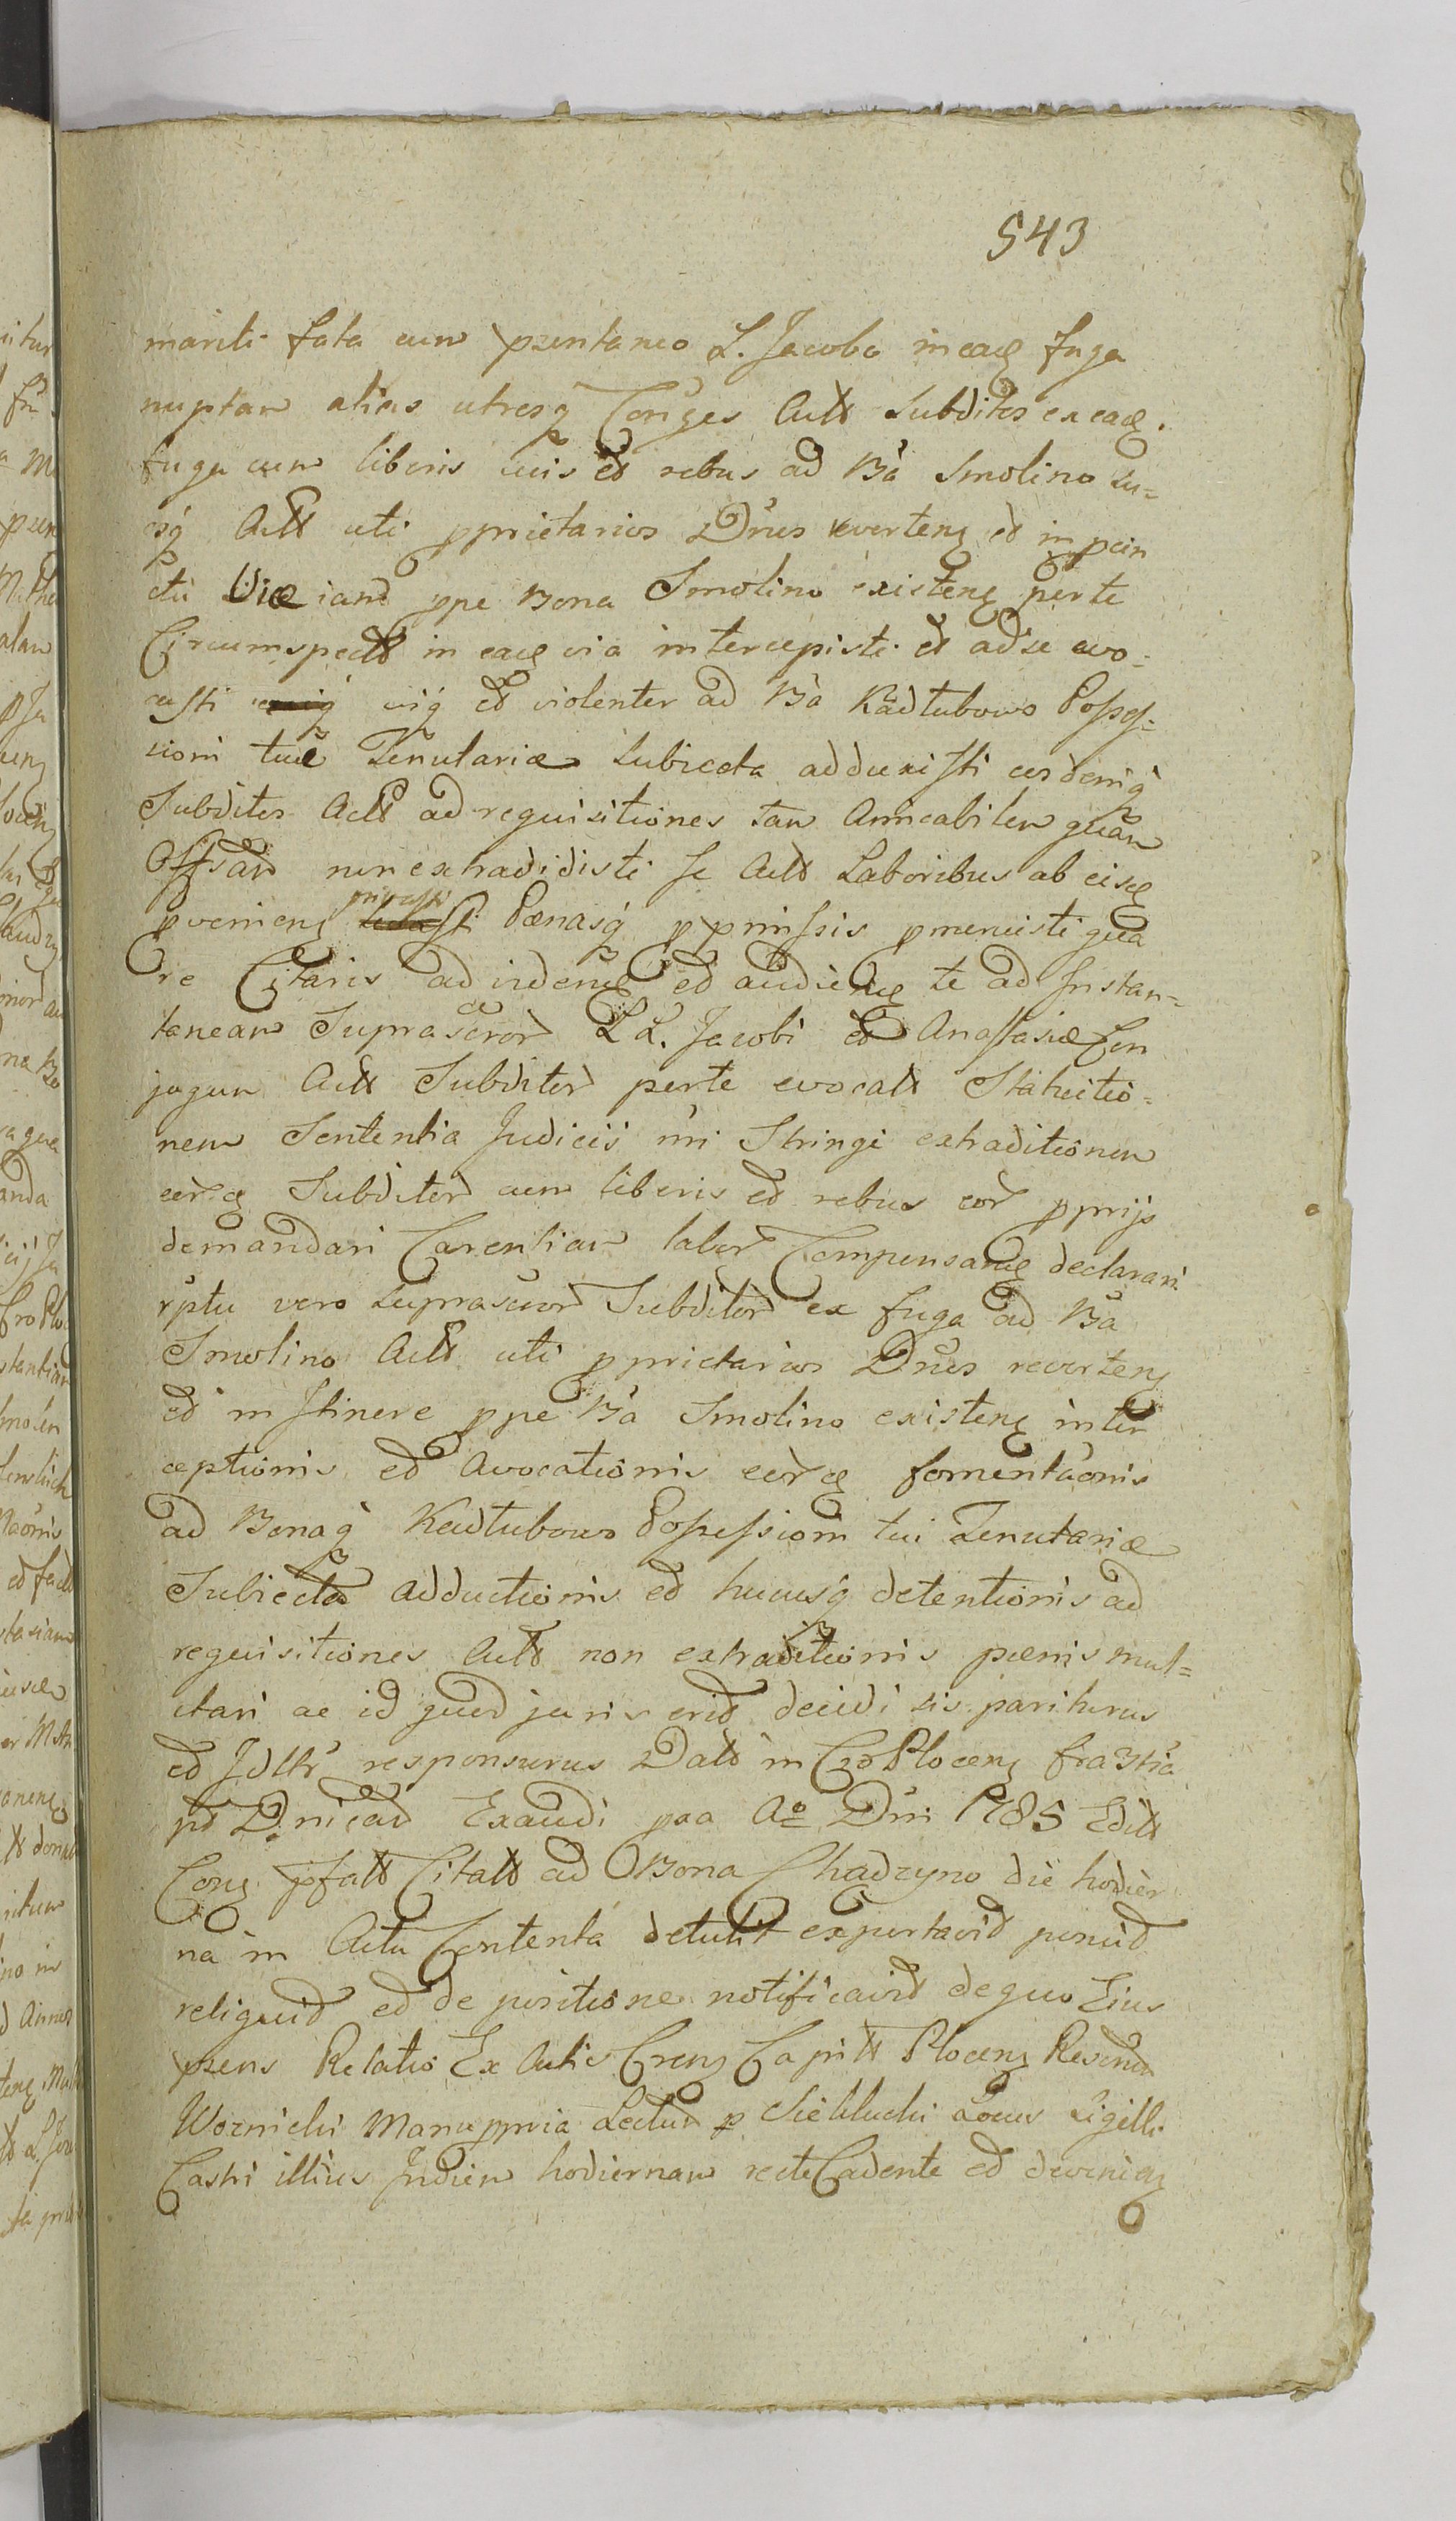 543
mariti fata cum pzentaneo L. Jacobo in eadē fuga
nuptam alias utrosq Conjges Actt Subditos ex eadē
fuga cum liberis suis et rebus ad Ba Smolino su=
osq Actt uti pprietarios Dnos reverteng et in pun
ctu Viæ iam ppe Bona Smolino existeng per te
Circumspectt in eadē via intercepisti et ad se avo=
casti viq et violenter ad Ba Kadlubowo Posses=
sioni tuæ Tenutariæ Subiecta adduxisti eosdemq
Subditos Actt ad requisitiones tam Amicabilem quam
Offsam non extradidisti Se Actt Laboribus ab eisdē
pvenieng privasti Pænasq p pmissis pmeruisti qua
re Citaris ad videndē et audiendē te ad Instan=
taneam Suprascror LL. Jacobi et Anastasiæ Con
jugum Actt Subditor per te evocatt Statuitio=
nem Sententia Judicii nri Stringi extraditionem
eordē Subditor cum liberis et rebus eor pprijs
demandari Carentiam labor Compensandē declarari
rptu vero Suprascror Subditor ex fuga ad Ba
Smolino Actt uti pprietarios Dnos reverteng
et in Itinere ppe Ba Smolino existeng inter
ceptionis et Avocationis eordē fomentaonis
ad Bonaq Kadlubowo Possessioni tui Tenutariæ
Subiecta adductionis et hucusq detentionis ad
requisitiones Actt non extraditionis pænis mul=
ctari ac id quod juris erit decidi sis pariturus
et Jdltr responsurus Datt in Cro Ploceng fra 3tia
pt Dnicam Exaudi pxa Ao Dni 1785 Editt
Cong pfatt Citatt ad Bona Chadzyno die hodier
na in Actu Contenta detulit exportavit posuit
reliquit et de positione notificavit de quo Eius
pzens Relatio Ex Actis Creng Capitt Ploceng
Woznicki Manu ppria Lectum p Locus Sigilli
Castri illius In diem hodiernam recte Cadente et devenieng